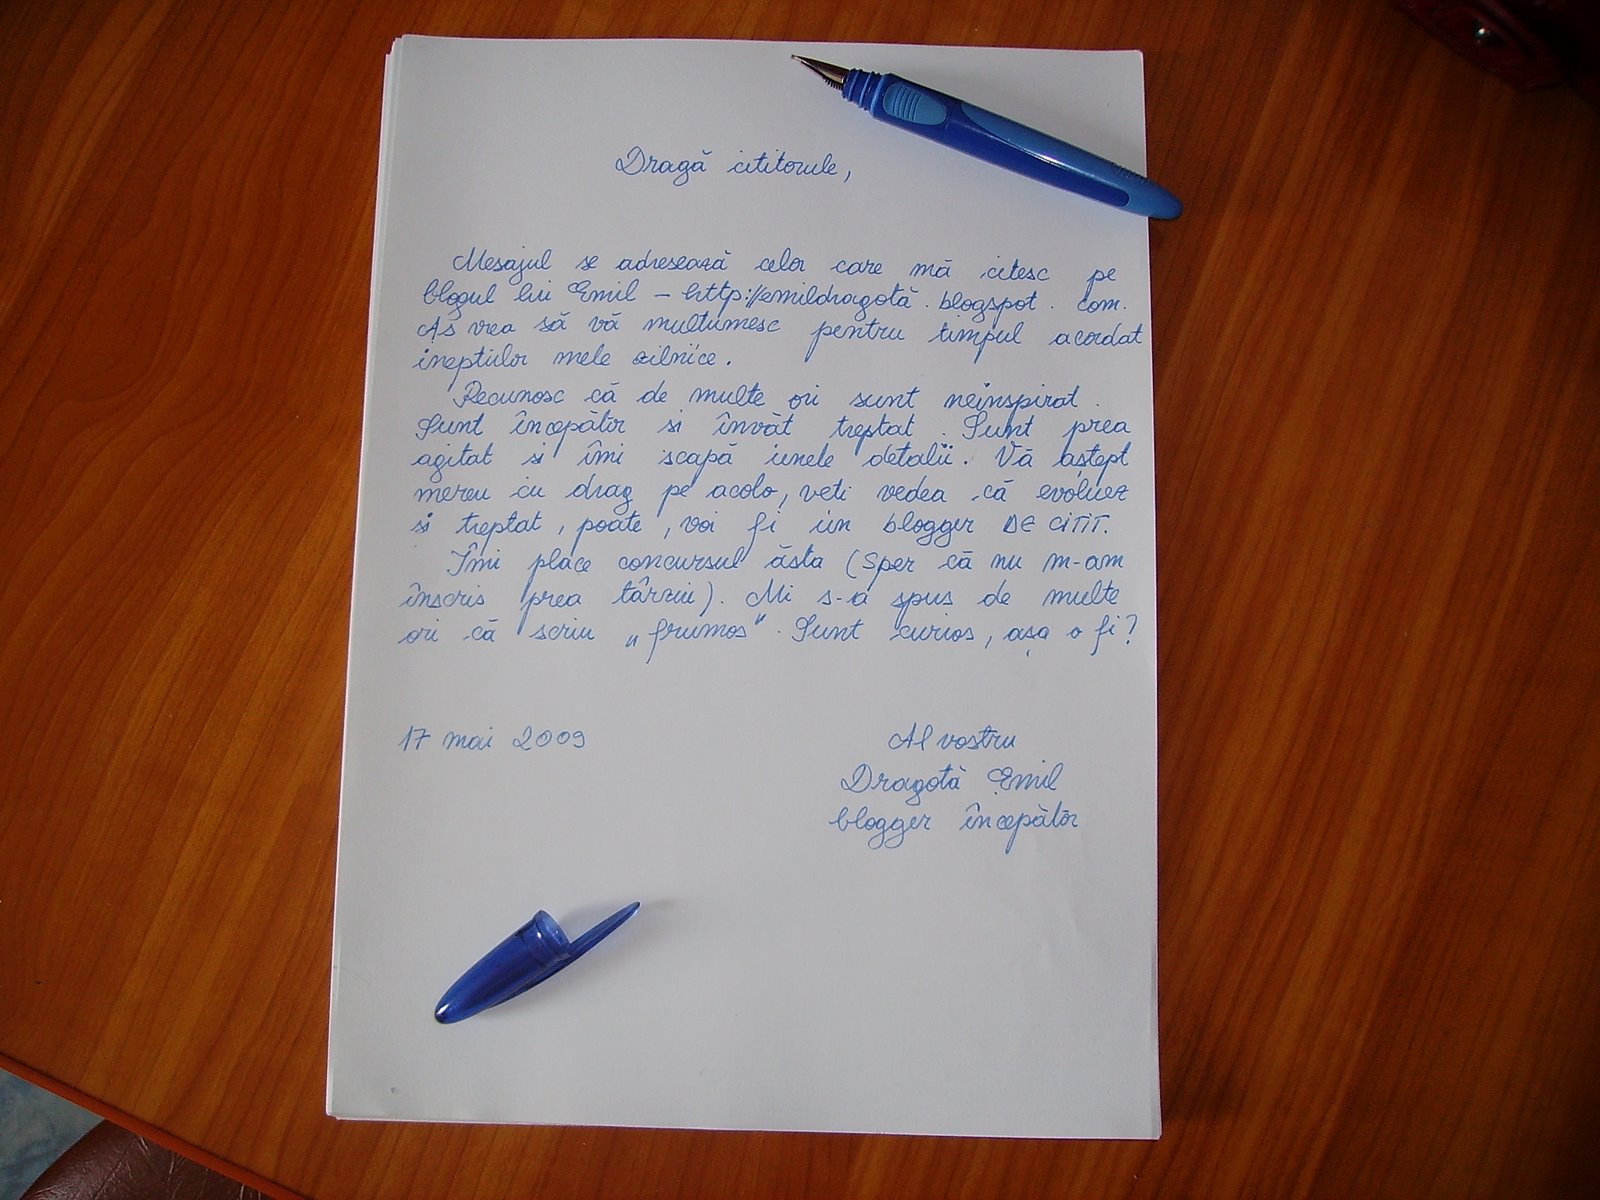 Dragă cititorule,
Mesajul se adresează celor care mă citesc pe
blogul lui Emil – http://emildragotă.blogspot.com.
As vrea să vă multumesc pentru timpul acordat
ineptiilor mele zilnice.
Recunosc că de multe ori sunt neinspirat.
Sunt începător si învăt treptat. Sunt prea
agitat si îmi scapă unele detalii. Vă aștept
mereu cu drag pe acolo, veti vedea că evoluez
si treptat, poate, voi fi un blogger DE CITIT.
Îmi place concursul ăsta (Sper că nu m-am
înscris prea târziu). Mi s-a spus de multe
ori că scriu „frumos". Sunt curios, așa o fi?
17 mai 2009
Al vostru
Dragotă Emil
blogger începător